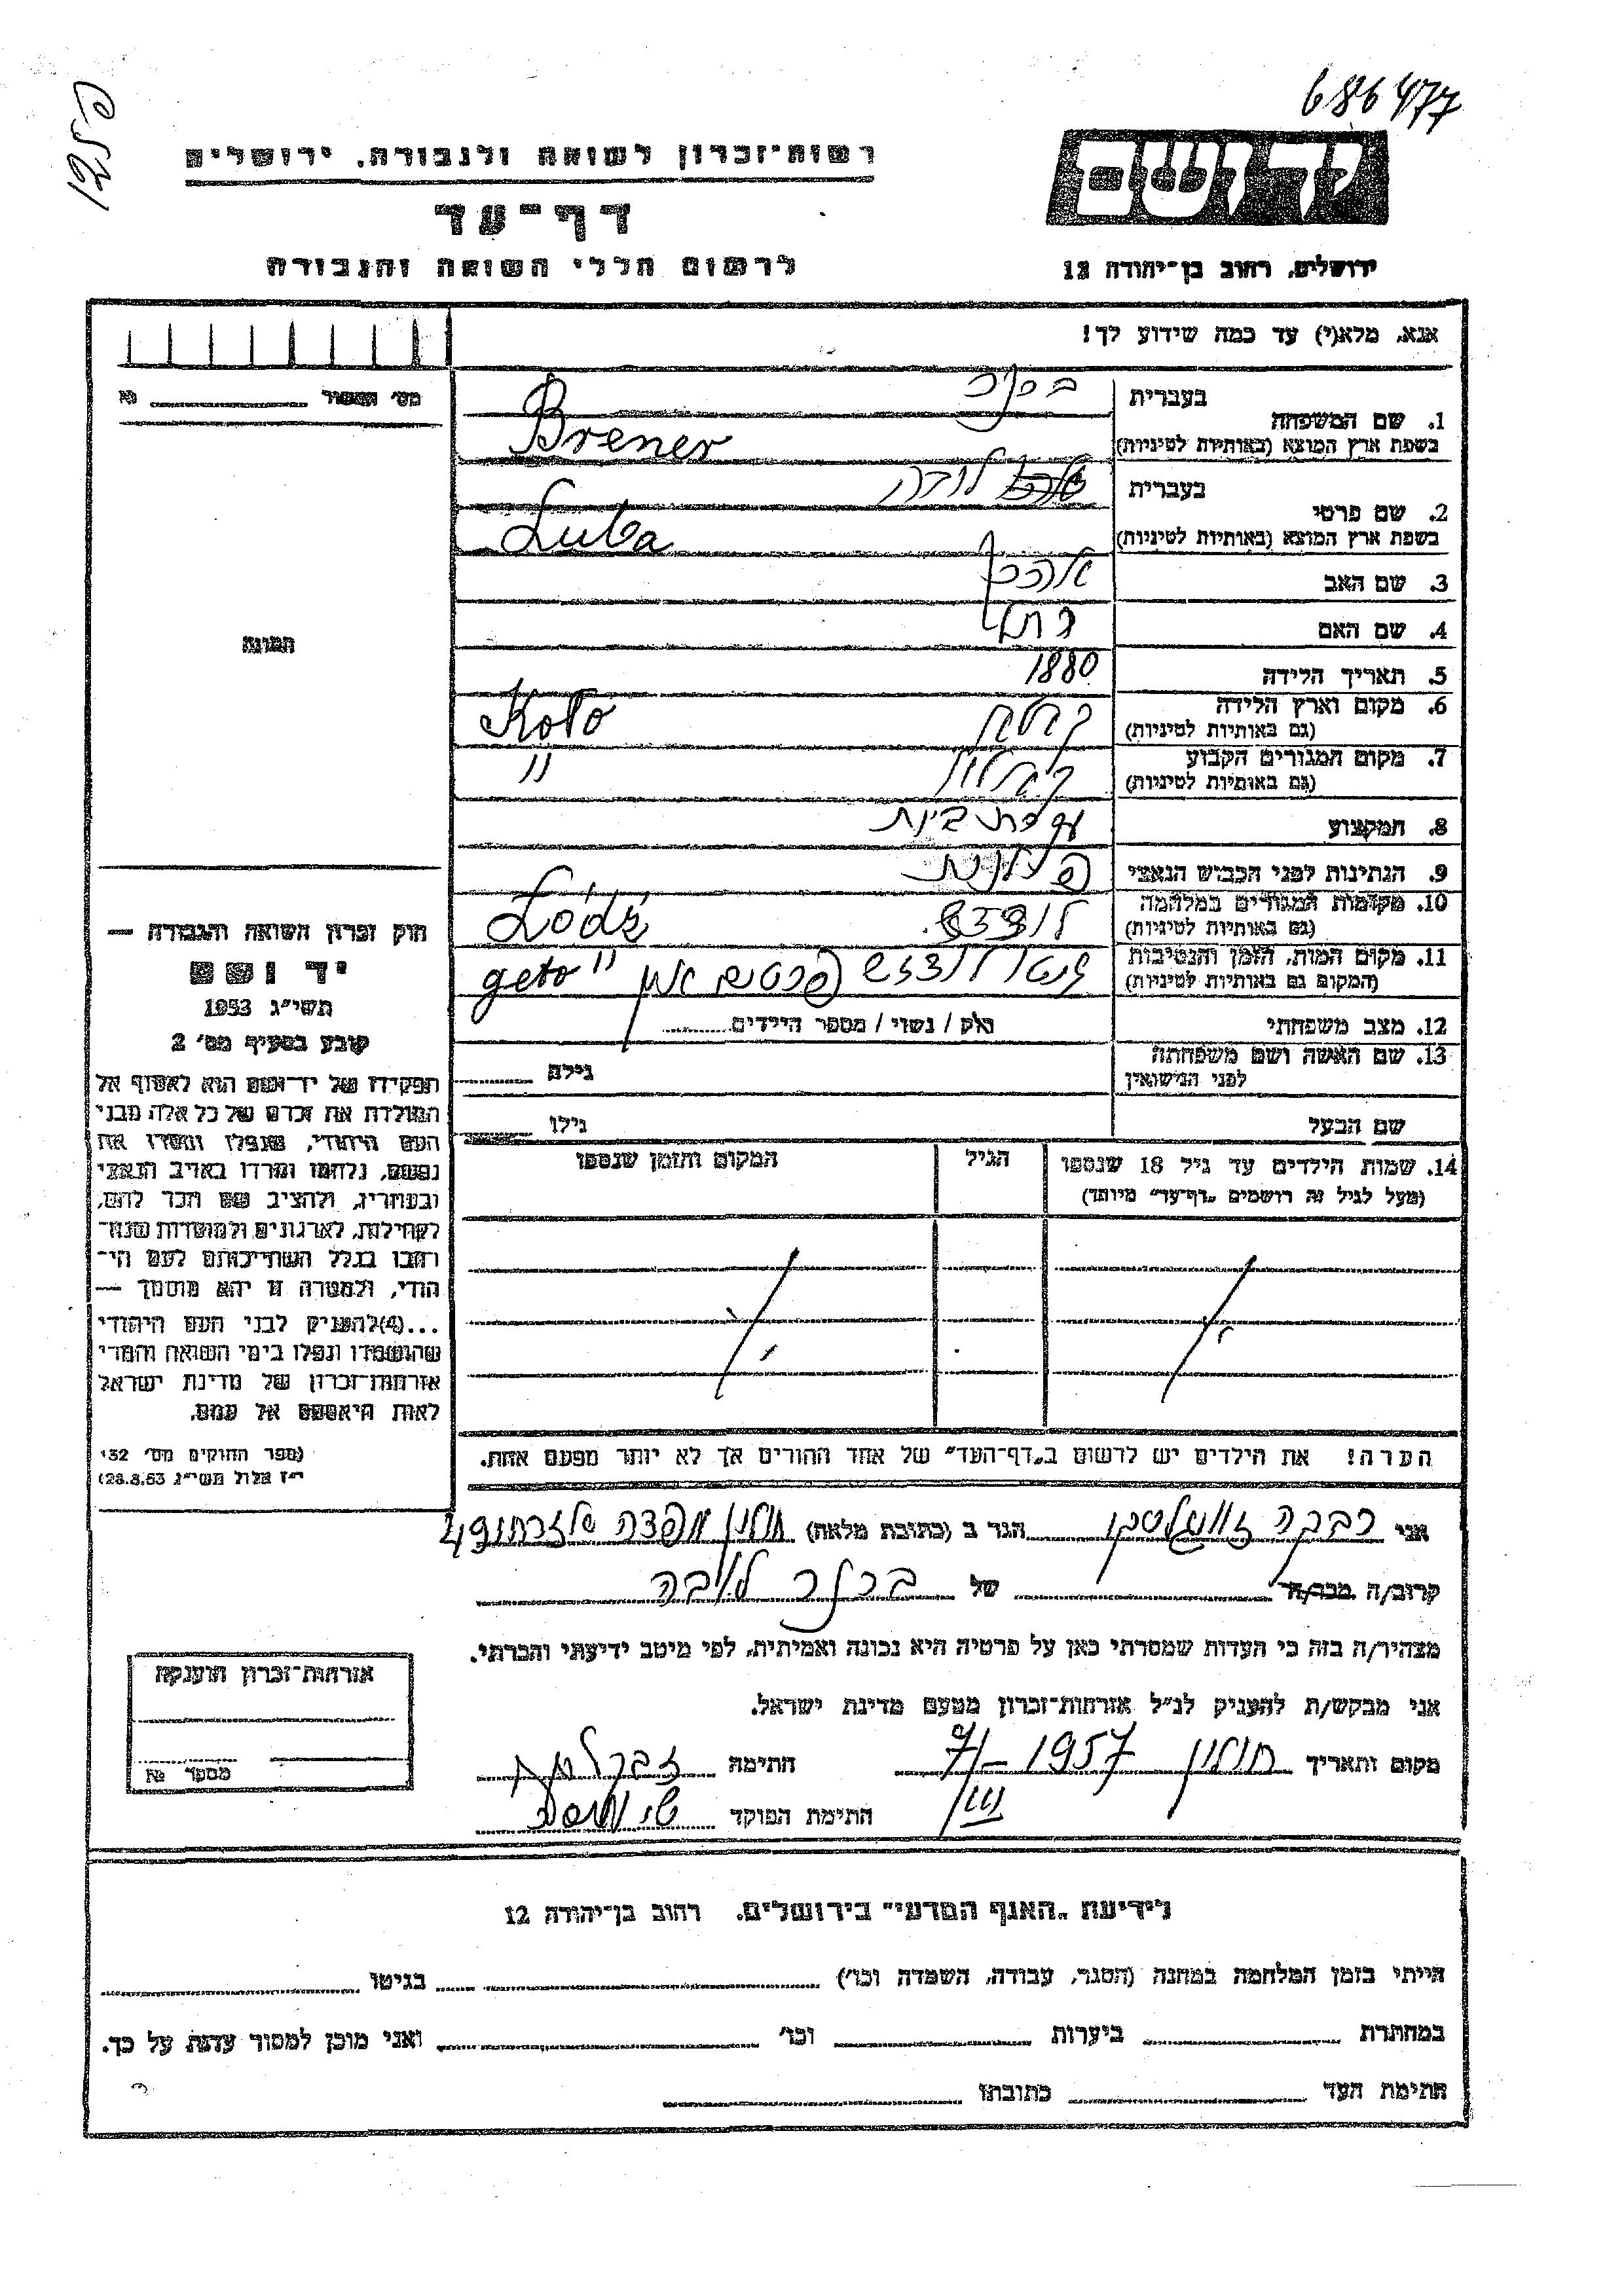 686477
רשות-זכרון לשואה ולגבורה, ירושלים
דף-עד
לרשום חללי השואה והגבורה
ירושלים, רחוב בן-יהודה 12
אנא, מלא(י) עד כמה שידוע לך!
מס' השאור №
1. שם המשפחה
בעברית
בשפת ארץ המוצא (באותיות לטיניות) Brener
2. שם פרטי
בעברית
בשפת ארץ המוצא (באותיות לטיניות) Luba
3. שם האב
4. שם האם
5. תאריך הלידה 1880
6. מקום וארץ הלידה
(גם באותיות לטיניות) Koło
7. מקום המגורים הקבוע
(גם באותיות לטיניות) "
8. המקצוע עקרת בית
9. הנתינות לפני הכבוש הנאצי פולנית
10. מקומות המגורים במלחמה
(גם באותיות לטיניות) Łódź
11. מקום המות, הזמן והנסיבות
(המקום גם באותיות לטיניות) geto "
12. מצב משפחתי רוק / נשוי / מספר הילדים
13. שם האשה ושם משפחתה
לפני הנישואין גילה
שם הבעל גילו
14. שמות הילדים עד גיל 18 שנספו
(מעל לגיל זה רושמים "דף-עד" מיוחד)
הגיל
המקום והזמן שנספו
הערה! את הילדים יש לרשום ב"דף-העד" של אחד ההורים אך לא יותר מפעם אחת.
התמונה
חוק זכרון השואה והגבורה —
יד ושם
תשי"ג 1953
קובע בסעיף מס' 2
תפקידו של יד-ושם הוא לאסוף אל
המולדת את זכרם של כל אלה מבני
העם היהודי, שנפלו ומסרו את
נפשם, נלחמו ומרדו באויב הנאצי
ובעוזריו, ולהציב שם וזכר להם,
לקהילות, לארגונים ולמוסדות שנח-
רבו בגלל השתייכותם לעם הי-
הודי, ולמטרה זו יהא מוסמך —
...(4)להעניק לבני העם היהודי
שהושמדו ונפלו בימי השואה והמרי
אזרחות-זכרון של מדינת ישראל
לאות היאספם אל עמם.
(ספר החוקים מס' 132
י"ז אלול תשי"ג 28.8.53)
אני רבקה הגר ב (כתובת מלאה) חולון
קרוב/ה מכר/ה של ברנר לובה
מצהיר/ה בזה כי העדות שמסרתי כאן על פרטיה היא נכונה ואמיתית, לפי מיטב ידיעתי והכרתי.
אני מבקש/ת להעניק לנ"ל אזרחות-זכרון מטעם מדינת ישראל.
מקום ותאריך חולון 1957 חתימה
חתימת הפוקד
אזרחות-זכרון הוענקה
מספר №
לידיעת "האגף המדעי" בירושלים, רחוב בן-יהודה 12
הייתי בזמן המלחמה במחנה (הסגר, עבודה, השמדה וכו') בגיטו
במחתרת ביערות וכו' ואני מוכן למסור עדות על כך.
חתימת העד כתובתו